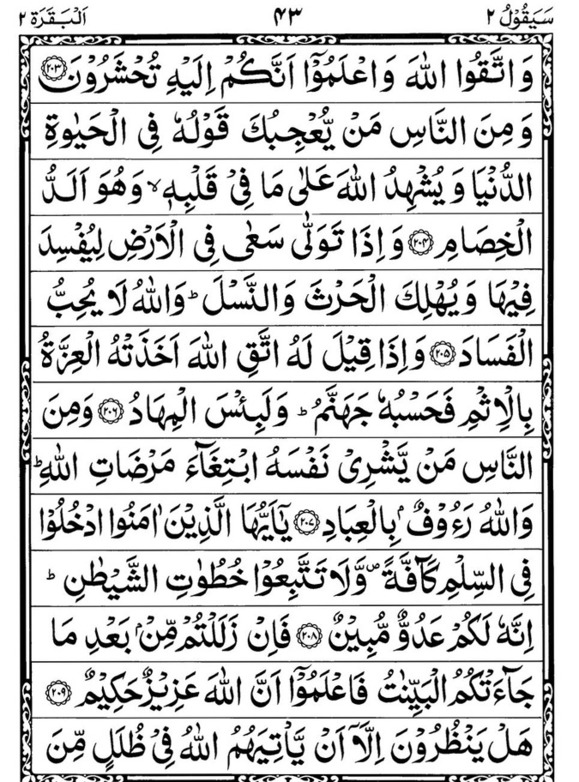 سَيَقُوْلُ ٢ ٤٣ اَلْبَقَرَة ٢
وَ اتَّقُوا اللّٰهَ وَ اعْلَمُوْۤا اَنَّكُمْ اِلَيْهِ تُحْشَرُوْنَ ﴿۲۰۳﴾
وَ مِنَ النَّاسِ مَنْ يُّعْجِبُكَ قَوْلُهٗ فِى الْحَيٰوةِ
الدُّنْيَا وَ يُشْهِدُ اللّٰهَ عَلٰى مَا فِىْ قَلْبِهٖ ۙ وَ هُوَ اَلَدُّ
الْخِصَامِ ﴿۲۰۴﴾ وَ اِذَا تَوَلّٰى سَعٰى فِى الْاَرْضِ لِيُفْسِدَ
فِيْهَا وَ يُهْلِكَ الْحَرْثَ وَ النَّسْلَ ؕ وَ اللّٰهُ لَا يُحِبُّ
الْفَسَادَ ﴿۲۰۵﴾ وَ اِذَا قِيْلَ لَهُ اتَّقِ اللّٰهَ اَخَذَتْهُ الْعِزَّةُ
بِالْاِثْمِ فَحَسْبُهٗ جَهَنَّمُ ؕ وَ لَبِئْسَ الْمِهَادُ ﴿۲۰۶﴾ وَ مِنَ
النَّاسِ مَنْ يَّشْرِىْ نَفْسَهُ ابْتِغَآءَ مَرْضَاتِ اللّٰهِ ؕ
وَ اللّٰهُ رَءُوْفٌۢ بِالْعِبَادِ ﴿۲۰۷﴾ يٰۤاَيُّهَا الَّذِيْنَ اٰمَنُوا ادْخُلُوْا
فِى السِّلْمِ كَآفَّةً ۪ وَّ لَا تَتَّبِعُوْا خُطُوٰتِ الشَّيْطٰنِ ؕ
اِنَّهٗ لَكُمْ عَدُوٌّ مُّبِيْنٌ ﴿۲۰۸﴾ فَاِنْ زَلَلْتُمْ مِّنْۢ بَعْدِ مَا
جَآءَتْكُمُ الْبَيِّنٰتُ فَاعْلَمُوْۤا اَنَّ اللّٰهَ عَزِيْزٌ حَكِيْمٌ ﴿۲۰۹﴾
هَلْ يَنْظُرُوْنَ اِلَّاۤ اَنْ يَّاْتِيَهُمُ اللّٰهُ فِىْ ظُلَلٍ مِّنَ